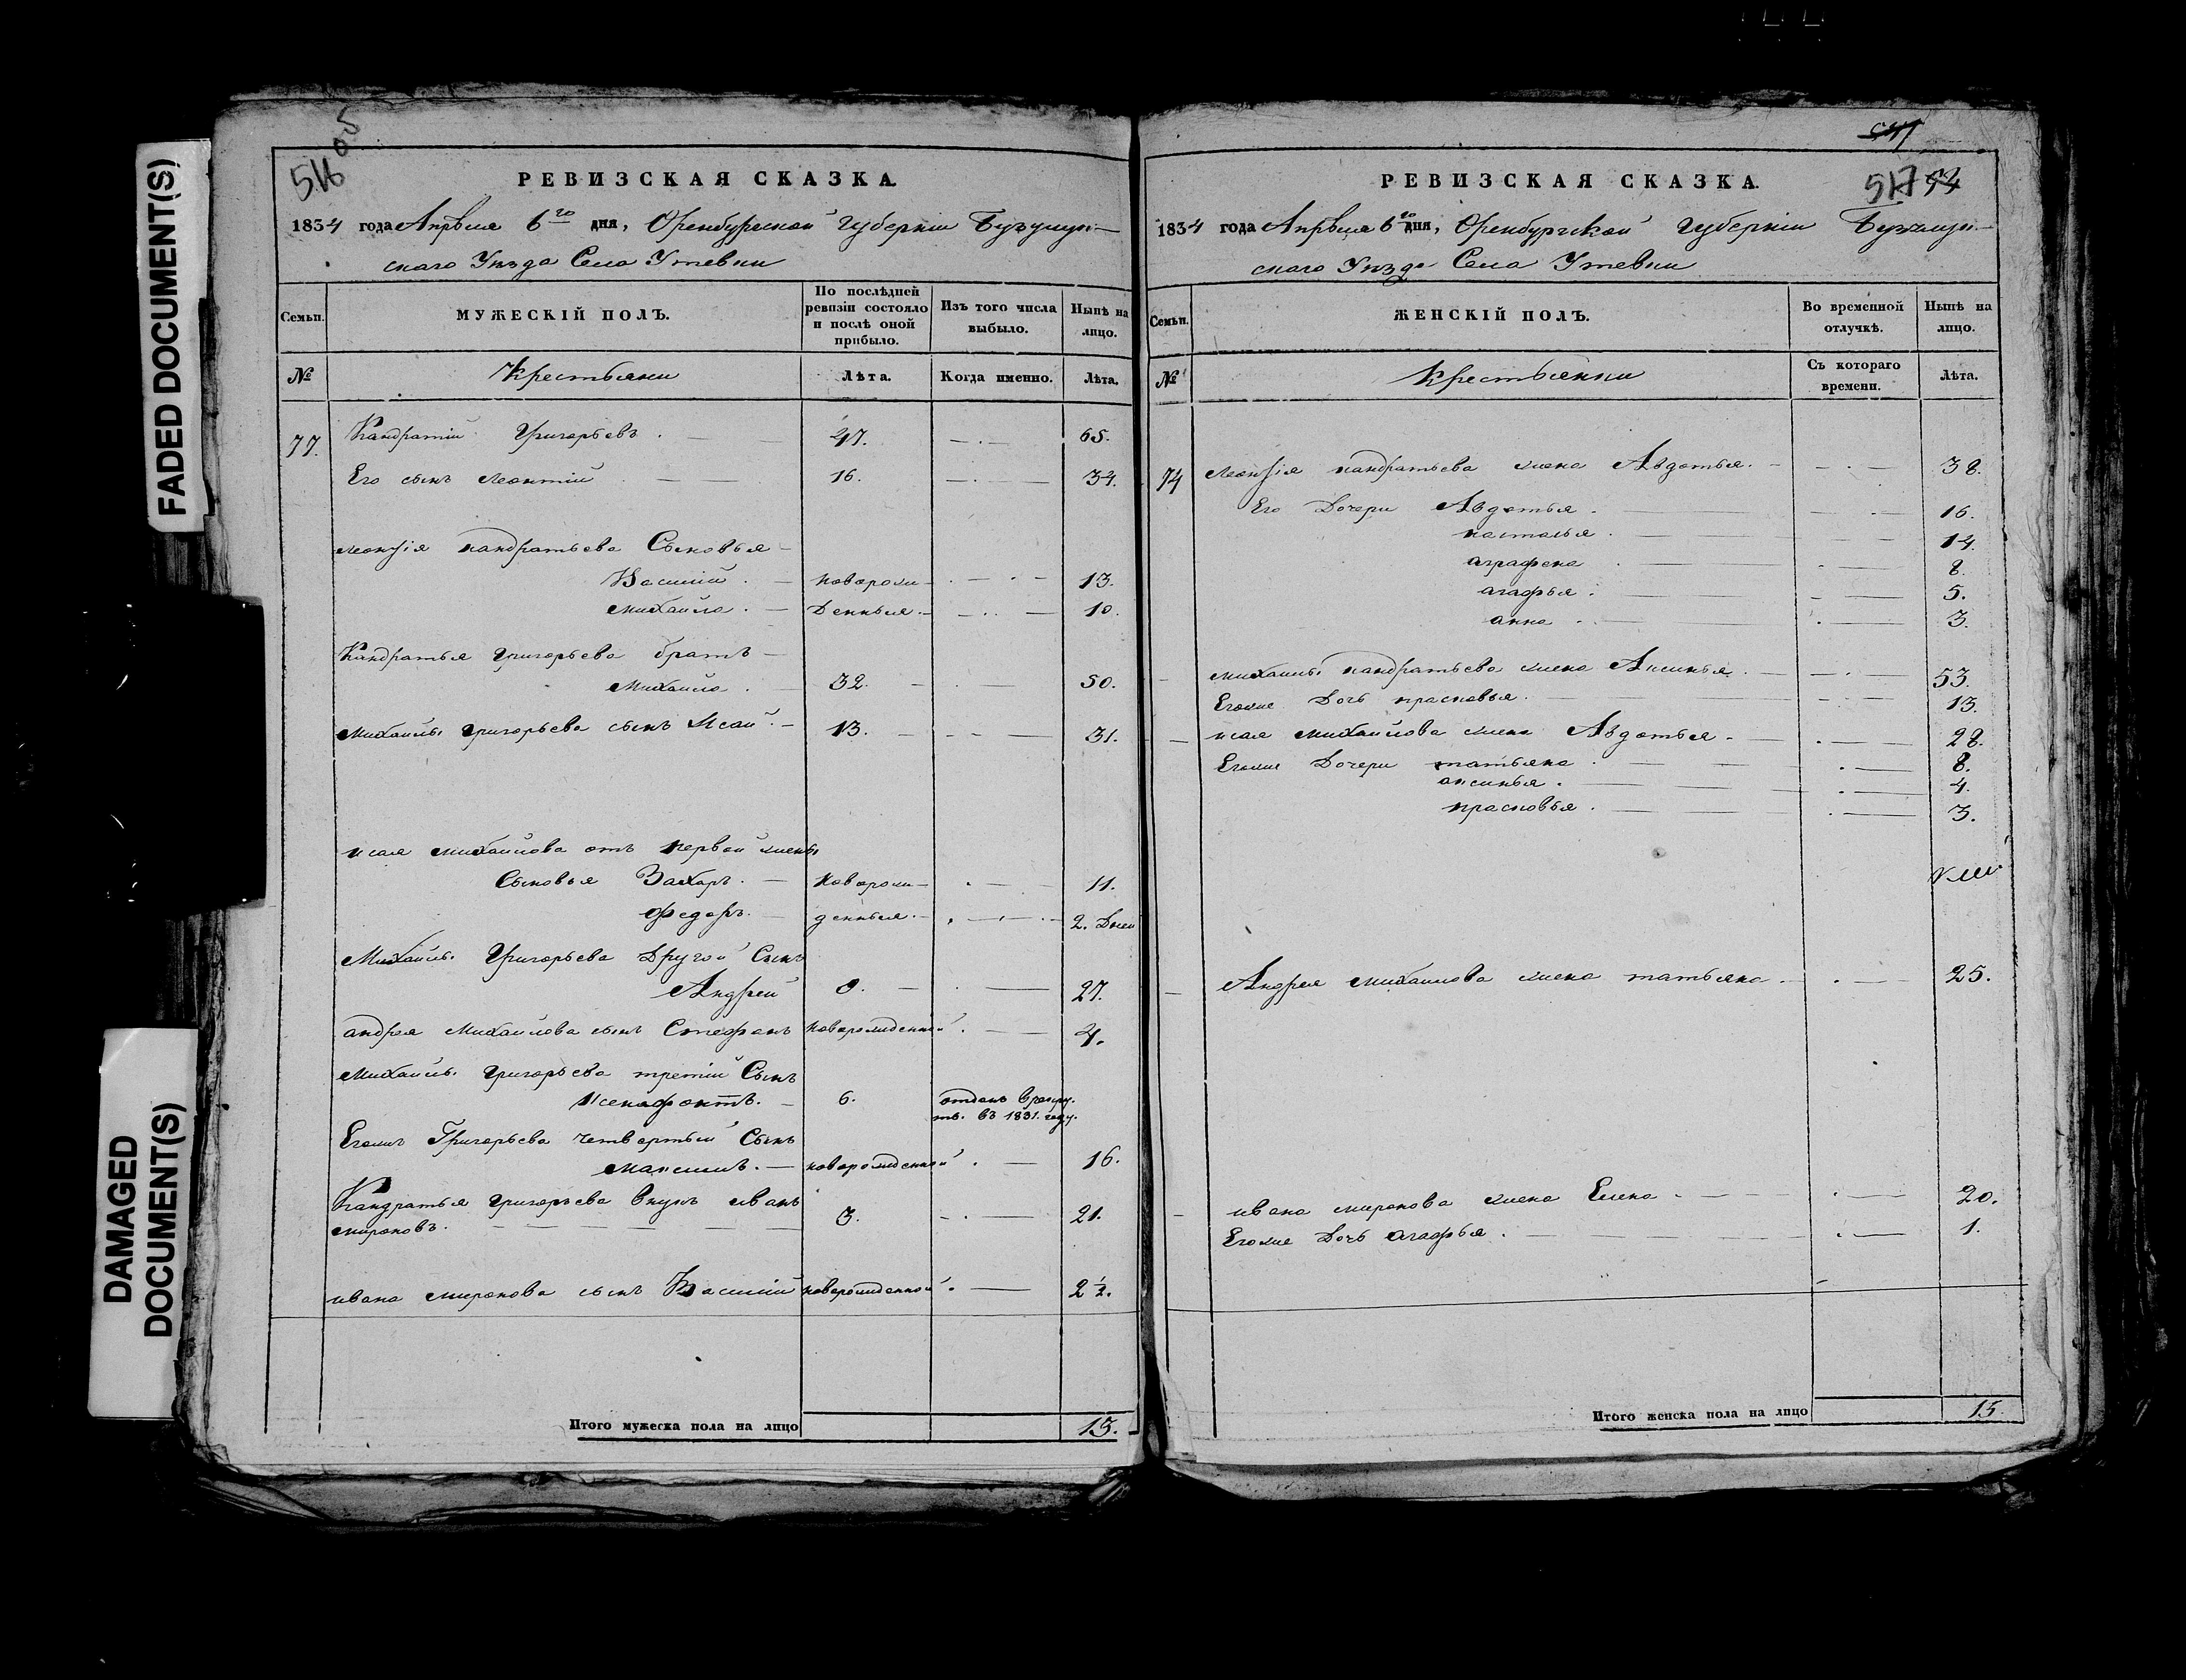 FADED DOCUMENT(S)
DAMAGED
DOCUMENT(S)
516
РЕВИЗСКАЯ СКАЗКА.
1834 года Апреля 6го дня, Оренбургской Губернiи Бузулук-
скаго Уѣзда Села Утевки
Семьи.
МУЖЕСКIЙ ПОЛЪ.
По послѣдней
ревизiи состояло
и послѣ оной
прибыло.
Изъ того числа
выбыло.
Нынѣ на
лицо.
№
Крестьяни
Лѣта.
Когда именно.
Лѣта.
77. Кандратiй Григорьевъ. 47. 65.
Его сынъ Леонтiй 16. 34.
Леонтiя кандратьева Сыновья
Василiй. новорож- 13.
михайла. Денныя. 10.
Кандратья григорьева братъ
михайла. 32. 50.
михайлы григорьева сынъ Исай. 13. 31.
исая михайлова отъ первой жены
Сыновья Захаръ. новорож- 11.
федоръ. денныя. 2. Дней
Михайлы Григорьева Другой Сынъ
Андрей 9. 27.
андрея михайлова сынъ Стефанъ новорожденной. 4.
михайлы григорьева третiй Сынъ
Ксенафонтъ. 6. отданъ врекру.
тъ. въ 1831. году.
Егожъ Григорьева четвертый Сынъ
максимъ. новорожденной. 16.
Кандратья григорьева внукъ иванъ
мироновъ. 3. 21.
ивана миронова сынъ Василiй новорожденной. 2 1/2.
Итого мужеска пола на лицо 15.
517
РЕВИЗСКАЯ СКАЗКА.
1834 года Апреля 6го дня, Оренбургской Губернiи Бузулук-
скаго Уѣзда Села Утевки
Семьи.
ЖЕНСКIЙ ПОЛЪ.
Во временной
отлучкѣ.
Нынѣ на
лицо.
№
Крестьянки
Съ котораго
времени.
Лѣта.
74 Леонтiя кандратьева жена Авдотья. 38.
Его Дочери Авдотья. 16.
насталья. 14.
аграфена 8.
агафья. 5.
анна. 3.
михайлы кандратьева жена Аксинья. 53.
Егоже Дочь прасковья. 13.
исая михайлова жена Авдотья. 28.
Егоже Дочери татьяна. 8.
аксинья. 4.
прасковья. 3.
Андрея михайлова жена татьяна. 25.
ивана миронова жена Елена. 20.
Егоже Дочь агафья. 1.
Итого женска пола на лицо 15.